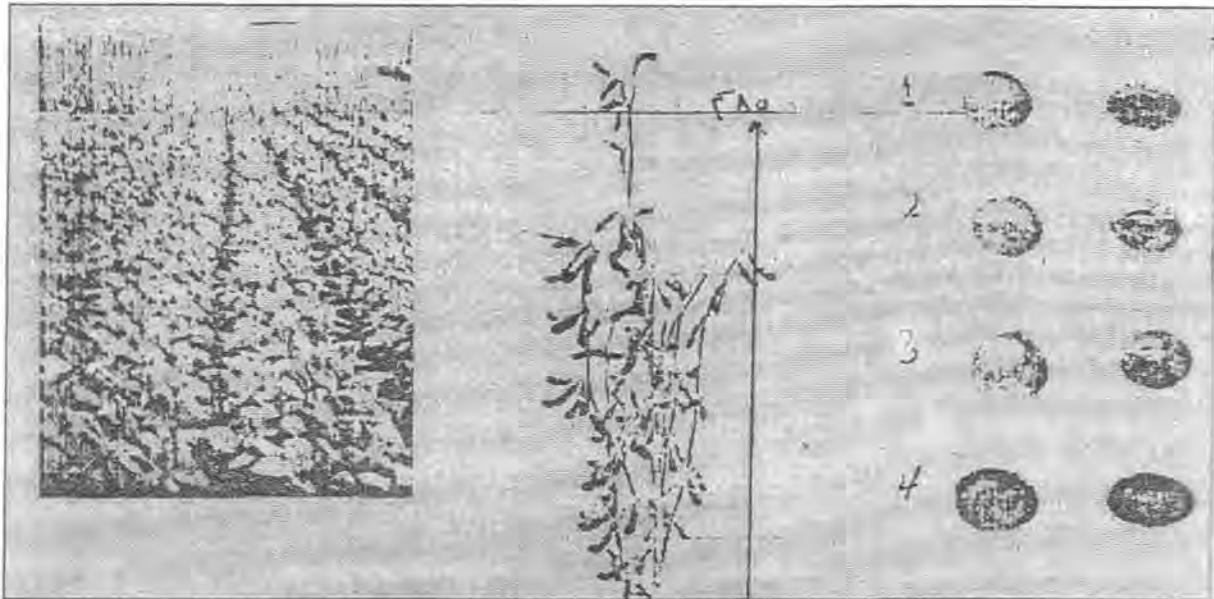 1
2
3
4